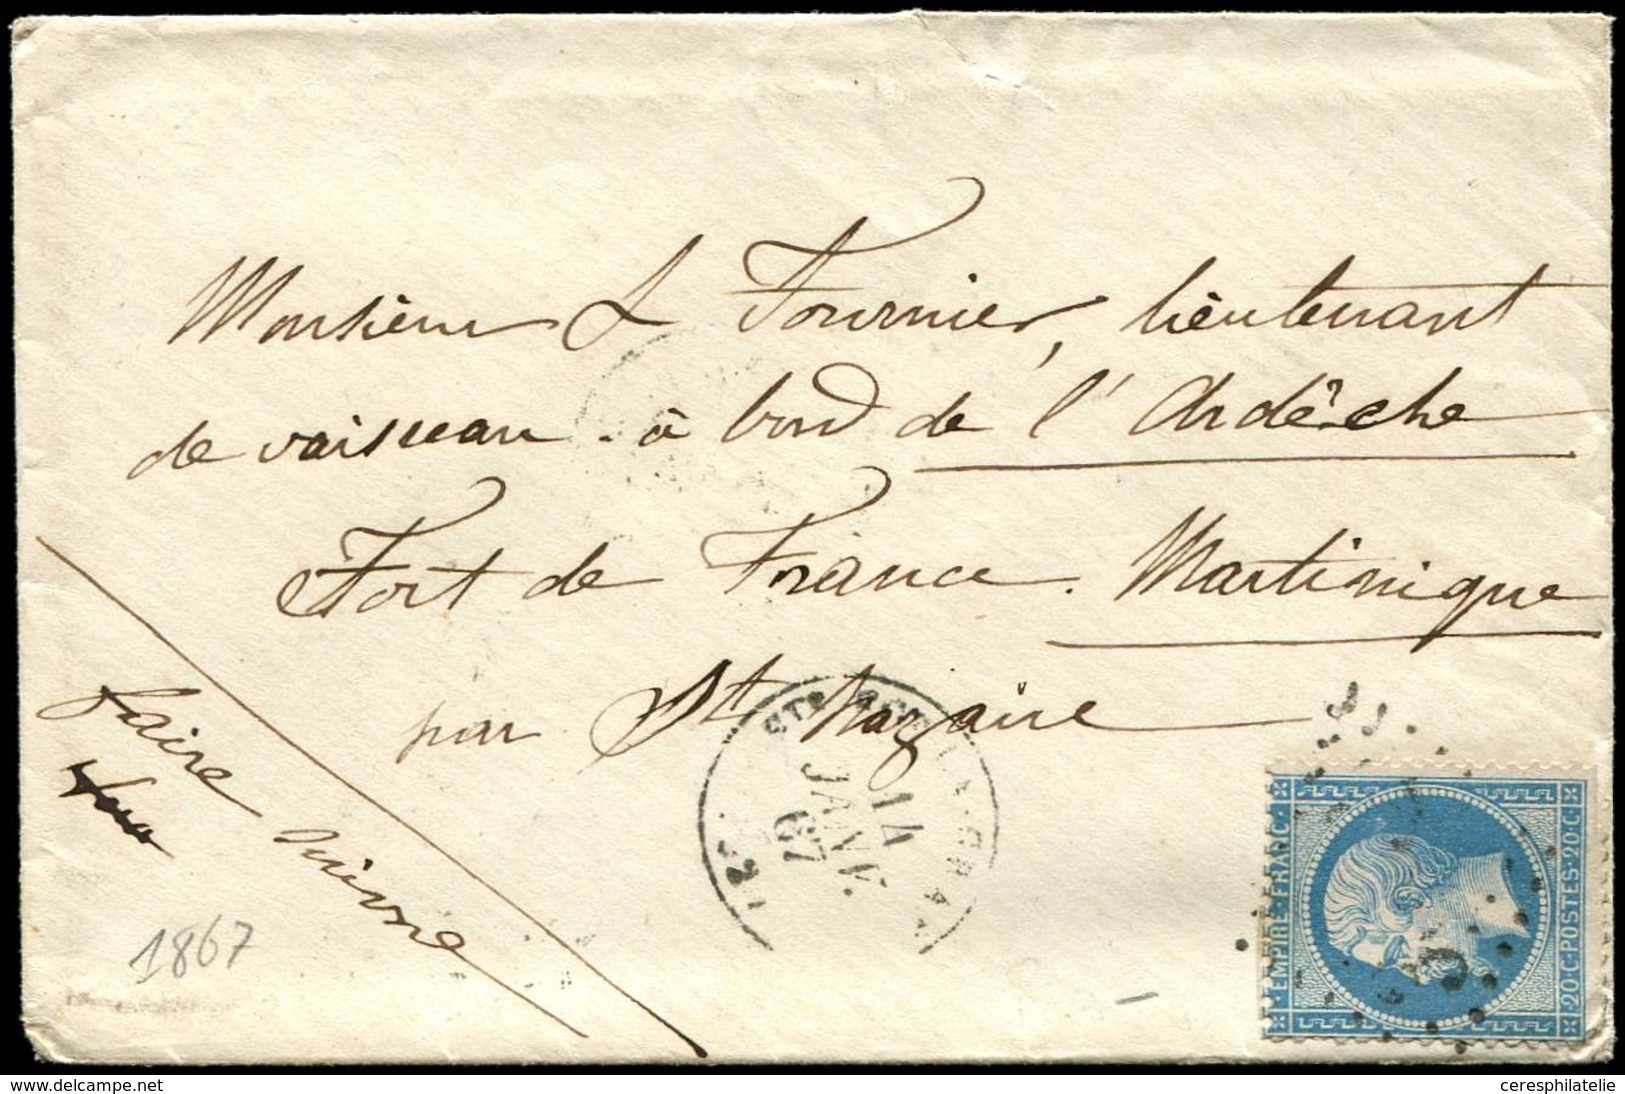 Monsieur L Fournier, lieutenant
de vaisseau à bord de l'Ardêche
Fort de France. Martinique
par St Nazaire
faire suivre
1867
14
JANV.
67
EMPIRE FRANC.
20.C.POSTES.20.C
www.delcampe.net
ceresphilatelie